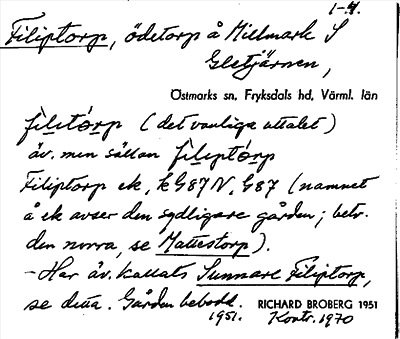 1-4.
Filiptorp, ödetorp å Millmark S
Gletjärnen,
Östmarks sn, Fryksdals hd, Värml. län
filitórp (det vanliga uttalet)
äv. men sällan filiptórp
Filiptorp ek, kG87N, G87 (namnet
å ek avser den sydligare gården; betr.
den norra, se Mattestorp).
- Har äv. kallats Sunnare Filiptorp,
se detta. Gården bebodd. RICHARD BROBERG 1951
1951. Kontr. 1970